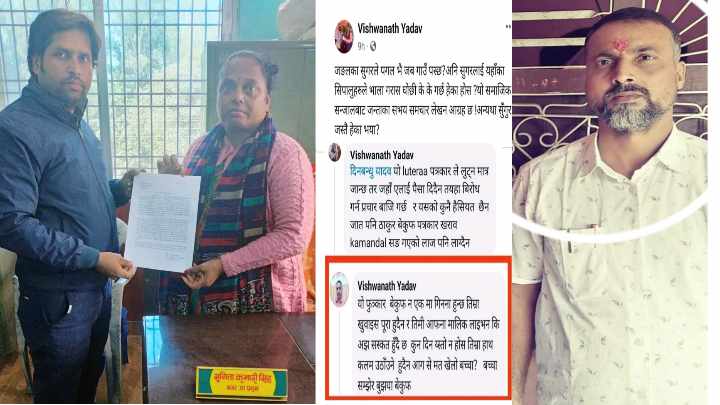 सुनिता कुमारी सिंह
नगर उप प्रमुख
Vishwanath Yadav
9h
जङलका सुगरले पगल भै जब गाउँ पस्छ?अनि सुगरलाई यहाँका
सिपालुहरुले भाला गरास घोछी के के गर्छ हेका होस ?यो समाजिक
सन्जालबाट जन्ताका सभ्य समचार लेखन आग्रह छ।अन्यथा सुँगुर
जस्तै हेका भया?
Vishwanath Yadav
दिनबन्धु यादव यो luteraa पत्रकार ले लुट्न मात्र
जान्छ तर जहाँ एलाई पैसा दिदैन तयहा बिरोध
गर्न प्रचार बाजि गर्छ र यसको कुनै हैसियत छैन
जात पनि ठाकुर बेकुफ पत्रकार खराव
kamandal सङ गएको लाज पनि लाग्दैन
Vishwanath Yadav
यो फुत्कार बेकुफ न एक मा गिनना हुन्छ तिम्रा
खुवाइस पूरा हुदैन र तिमी आफना मालिक लाइभन कि
अझ सस्कत हुँदै छ कुन दिन यस्तो न होस तिम्रा हाथ
कलम उठाँउने हुदैन आग से मत खेलो बच्चा? बच्चा
सम्झेर बुझाया बेकुफ